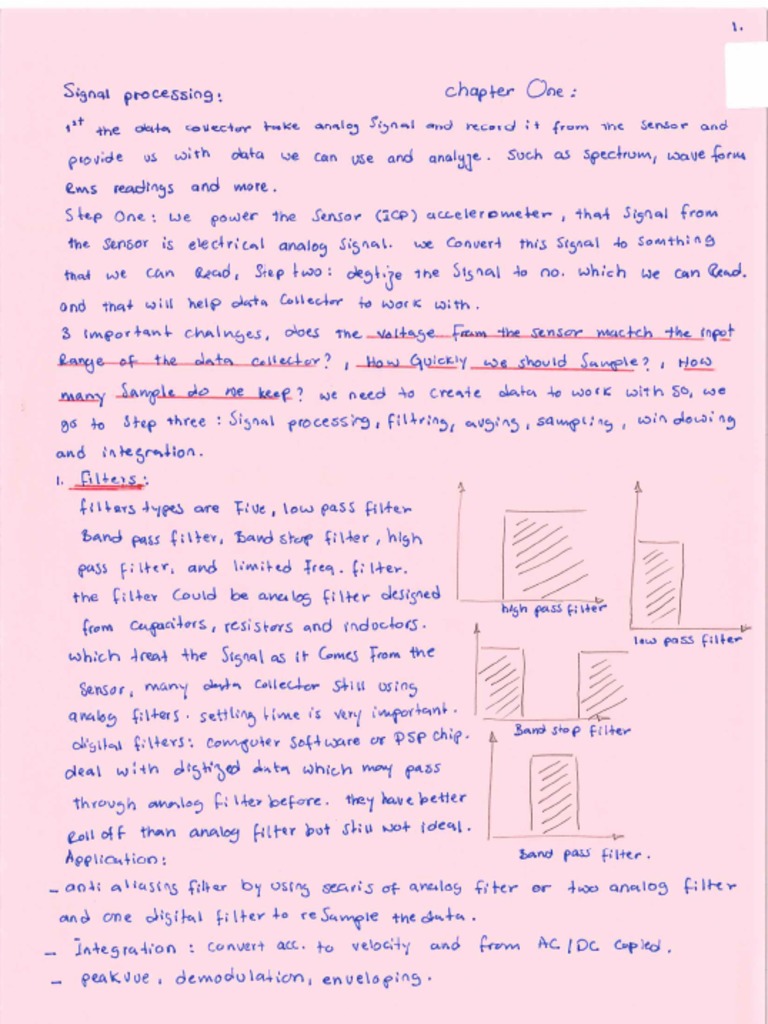 1.
Signal processing: chapter One:
1st the data covector take analog Signal and record it from the sensor and
provide us with data we can use and analyze. Such as spectrum, wave form
Rms readings and more.
Step One: we power the Sensor (ICP) accelerometer, that Signal from
the sensor is electrical analog signal. we Convert this Signal to somthing
that we can Read, Step two: degtize the Signal to no. which we can Read.
and that will help data Collector to work with.
3 important chalnges, does the voltage from the sensor mactch the input
Range of the data collector?, How Quickly we should Sample?, How
many Sample do we keep? we need to create data to work with so, we
go to Step three: Signal processing, filtring, avging, sampling, windowing
and integration.
1. Filters:
filters types are Five, low pass filter
Band pass filter, Band stop filter, high
pass filter, and limited freq. filter.
the filter Could be analog filter designed
from capacitors, resistors and inductors.
which treat the Signal as it Comes From the
Sensor, many data Collector still using
analog filters. settling time is very important.
digital filters: computer software or DSP chip.
deal with digtized data which may pass
through analog filter before. they have better
Roll off than analog filter but still not ideal.
high pass filter
low pass filter
Band stop filter
Band pass filter.
Application:
- anti aliasing filter by using searis of analog fiter or two analog filter
and one digital filter to reSample the data.
- Integration: convert acc. to velocity and from AC/DC Copled.
- peakvue, demodulation, enveloping.